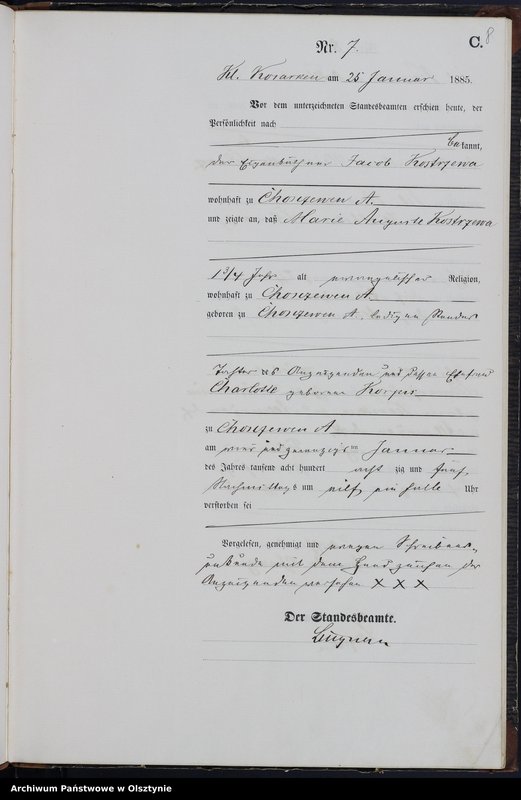 Nr. 7.
C. 8
Kl. Kosarken am 25 Januar 1885.
Vor dem unterzeichneten Standesbeamten erschien heute, der
Persönlichkeit nach
bekannt,
der Eigenkäthner Jacob Kostrzewa
wohnhaft zu Choszewen A.
und zeigte an, daß Marie Auguste Kostrzewa
1 3/4 Jahr alt evangelischer Religion,
wohnhaft zu Choszewen A.
geboren zu Choszewen A. ledigen Standes
Tochter des Anzeigenden und dessen Ehefrau
Charlotte geborene
zu Choszewen A
am vier und zwanzigsten Januar
des Jahres tausend acht hundert acht zig und fünf
Nachmittags um eilf ein halb Uhr
verstorben sei
Vorgelesen, genehmigt und wegen Schreibens-
unkunde mit dem Handzeichen des
Anzeigenden versehen X X X
Der Standesbeamte.
Archiwum Państwowe w Olsztynie